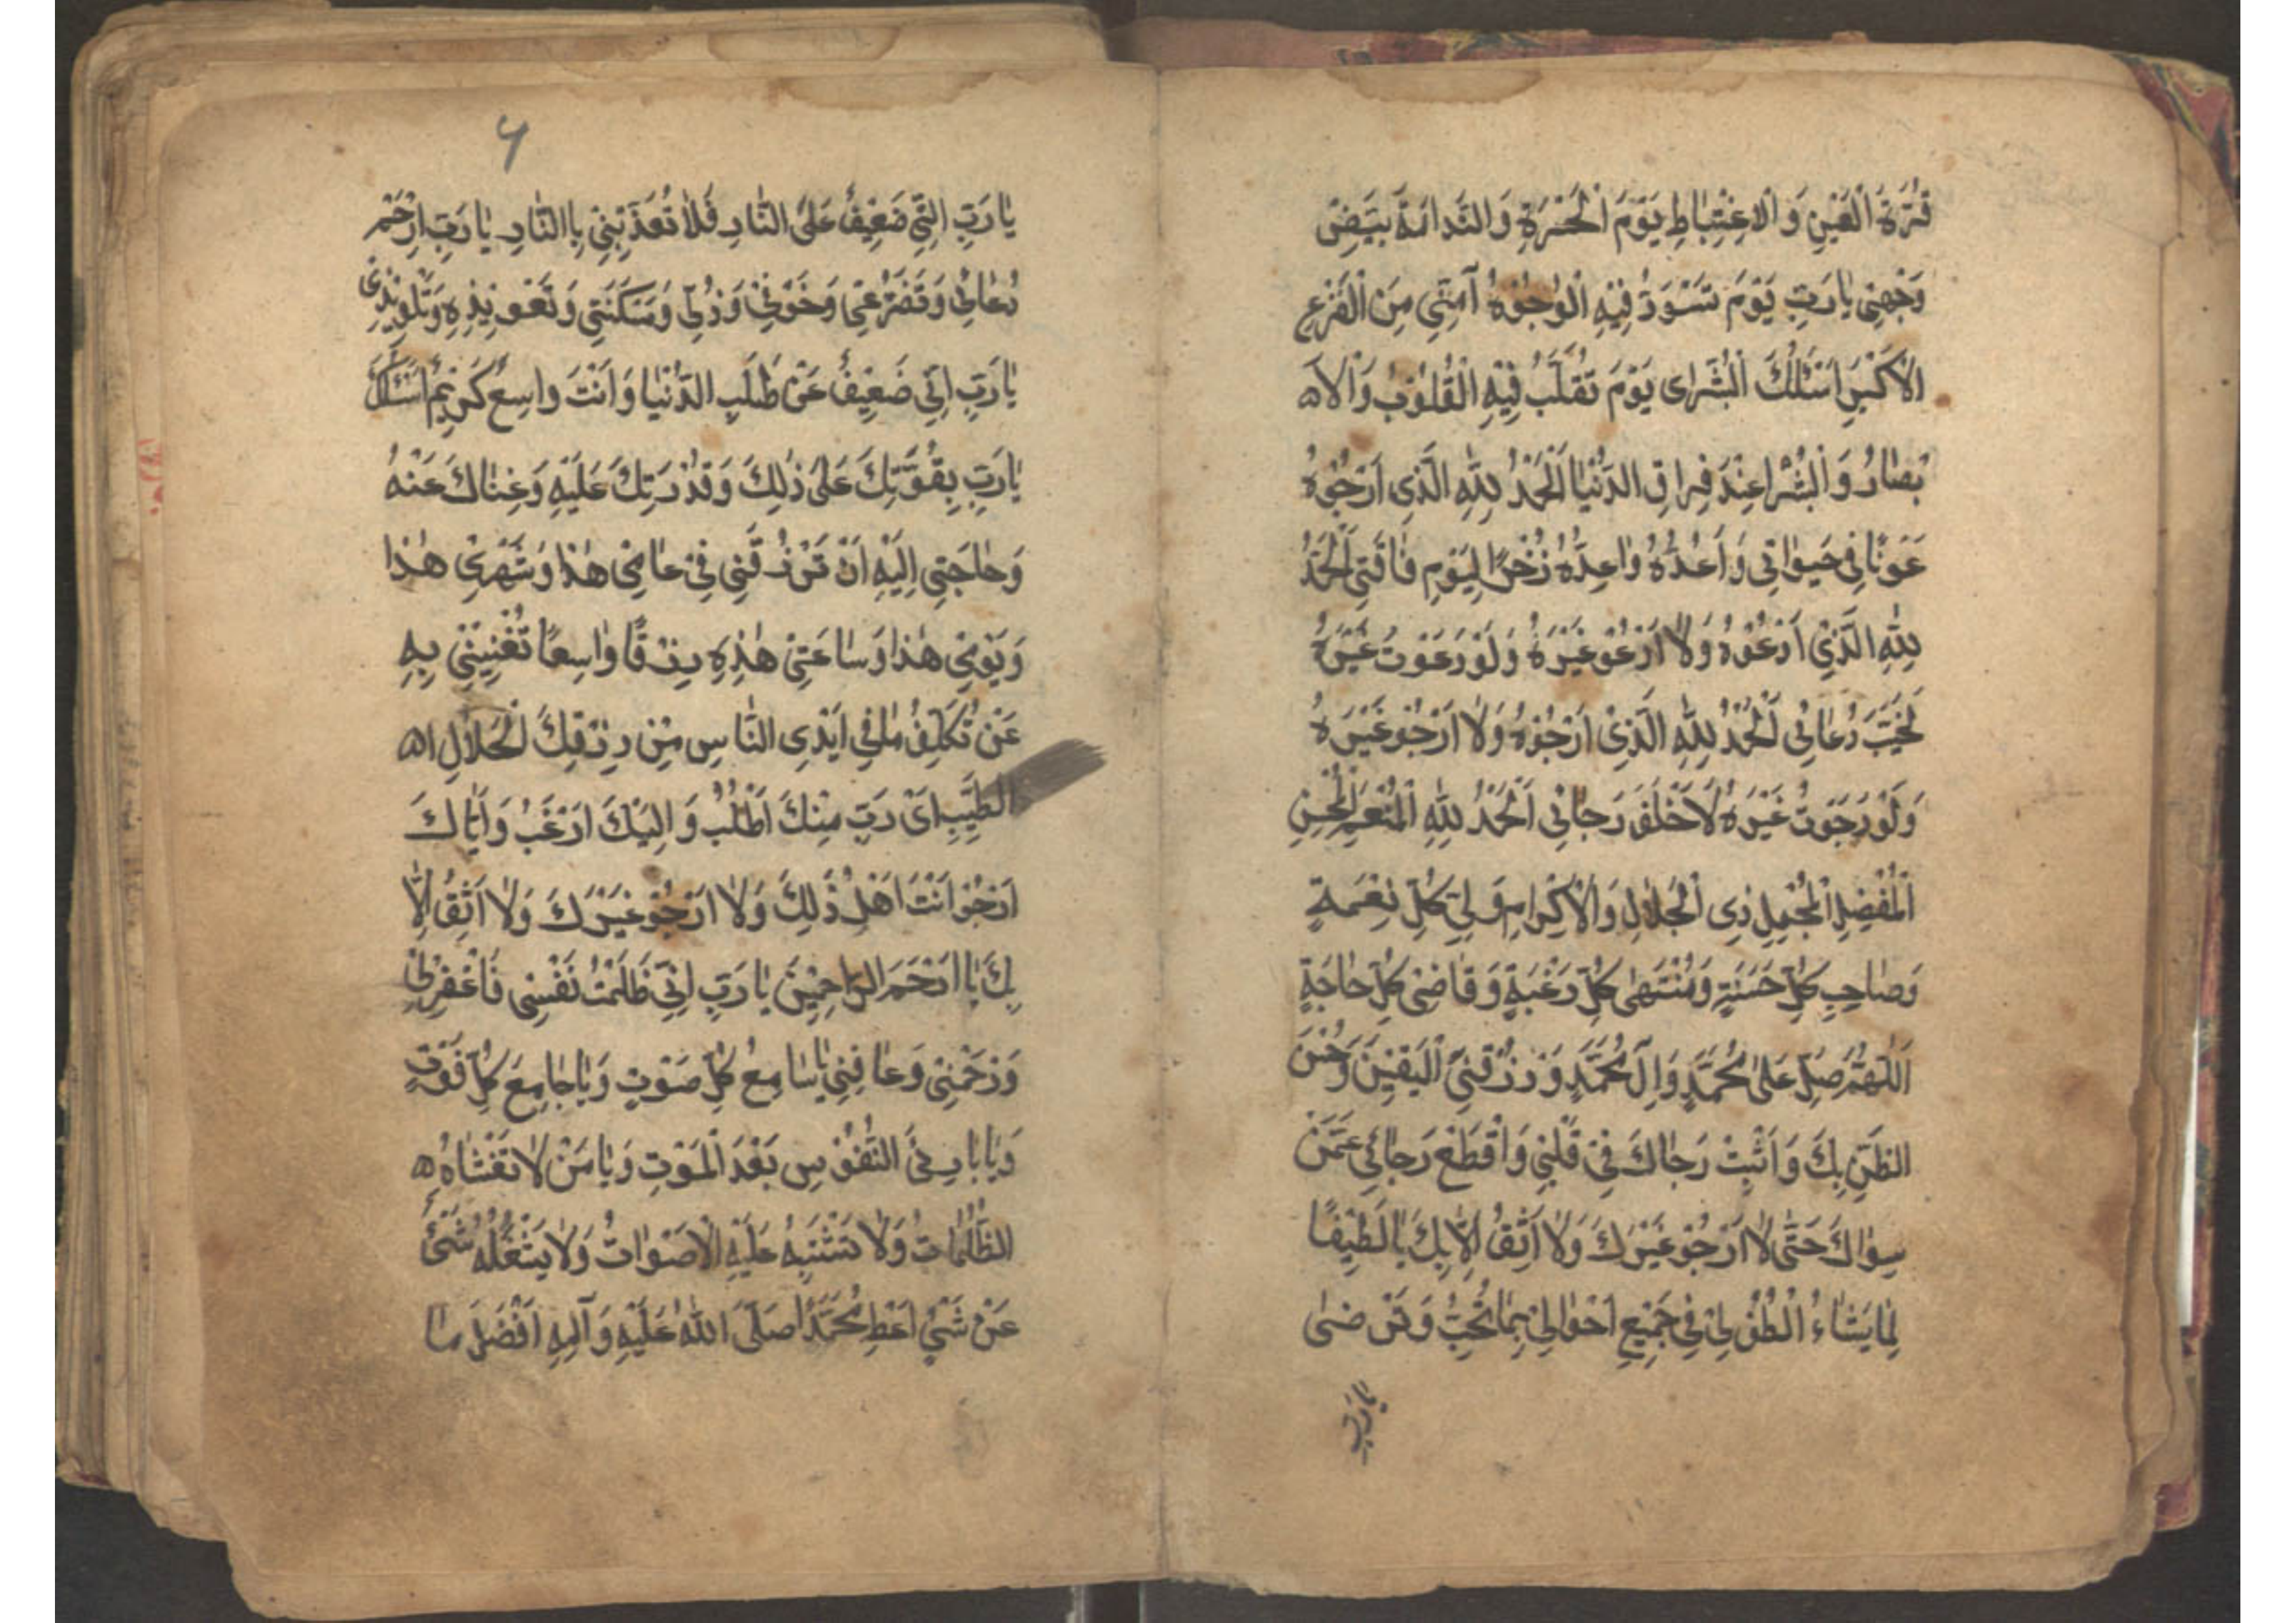 قُرَّةَ الْعَيْنِ وَ الْاِغْتِبَاطِ يَوْمَ الْحَسْرَةِ وَ النَّدامَةِ بِيَضِّ
وَجْهِى يٰا رَبِّ يَوْمَ تَسْوَدُّ فِيْهِ الْوُجُوْهُ آمِنِّي مِنَ الْفَزَعِ
الْاَكْبَرِ اَسْئَلُكَ الْبُشْرٰاى يَوْمَ تُقَلَّبُ فِيْهِ الْقُلُوْبُ وَالْاَ
بْصٰارُ وَ الْبُشْرٰا عِنْدَ فِرٰاقِ الدُّنْيٰا اَلْحَمْدُ لِلّٰهِ الَّذِى اَرْجُوْهُ
عَوْنًا فِى حَيٰوتِى وَ اَعُدُّهُ وَاعِدُّهُ ذُخْرًا لِيَوْمِ فٰاقَتِى اَلْحَمْدُ
لِلّٰهِ الَّذِيْ اَدْعُوْهُ وَ لٰا اَدْعُوْ غَيْرَهُ وَ لَوْ دَعَوْتُ غَيْرَهُ
لَخَيَّبَ دُعٰائِى اَلْحَمْدُ لِلّٰهِ الَّذِىْ اَرْجُوْهُ وَ لٰا اَرْجُوْ غَيْرَهُ
وَ لَوْ رَجَوْتُ غَيْرَهُ لَاَخْلَفَ رَجٰائِى اَلْحَمْدُ لِلّٰهِ الْمُنْعِمِ الْمُحْسِنِ
الْمُفْضِلِ الْمُجْمِلِ ذِى الْجَلٰالِ وَالْاِكْرٰامِ وَلِيِّ كُلِّ نِعْمَةٍ
وَ صٰاحِبِ كُلِّ حَسَنَةٍ وَ مُنْتَهٰى كُلِّ رَغْبَةٍ وَ قٰاضِىْ كُلِّ حٰاجَةٍ
اَللّٰهُمَّ صَلِّ عَلٰى مُحَمَّدٍ وَ اٰلِ مُحَمَّدٍ وَ رْزُقْنِيَ الْيَقِيْنَ وَ حُسْنَ
الظَّنِّ بِكَ وَ اَثْبِتْ رَجٰاكَ فِىْ قَلْبِىْ وَ اقْطَعْ رَجٰائِيْ عَمَّنْ
سِوٰاكَ حَتّٰى لٰا اَرْجُوْ غَيْرَكَ وَ لٰا اَثِقُ اِلّٰا بِكَ يٰا لَطِيْفًا
لِمٰا يَشٰاءُ الْطُفْ لِىْ فِىْ جَمِيْعِ اَحْوٰالِىْ بِمٰا تُحِبُّ وَ تَرْضٰى
يٰا رَبِّ
۶
يٰا رَبِّ اِنِّيْ ضَعِيْفٌ عَلَى النّٰارِ فَلٰا تُعَذِّبْنِيْ بِاالنّٰارِ يٰا رَبِّ ارْحَمْ
دُعٰائِىْ وَ تَضَرُّعِىْ وَ خَوْفِىْ وَ ذُلِّى وَ مَسْكَنَتِى وَ تَعْوِيْذِيْ وَ تَلْوِيْذِىْ
يٰا رَبِّ اِنِّى ضَعِيْفٌ عَنْ طَلَبِ الدُّنْيٰا وَ اَنْتَ وٰاسِعٌ كَرِيْمٌ اَسْئَلُكَ
يٰا رَبِّ بِقُوَّتِكَ عَلٰى ذٰلِكَ وَ قُدْرَتِكَ عَلَيْهِ وَ غِنٰاكَ عَنْهُ
وَ حٰاجَتِى اِلَيْهِ اَنْ تَرْزُقَنِى فِىْ عٰامِىْ هٰذٰا وَ شَهْرِىْ هٰذٰا
وَ يَوْمِىْ هٰذٰا وَ سٰاعَتِىْ هٰذِهِ رِزْقًا وٰاسِعًا تُغْنِيْنِىْ بِهِ
عَنْ تَكَلُّفِ مٰا فِي اَيْدِى النّٰاسِ مِنْ رِزْقِكَ الْحَلٰالِ ا
الطَّيِّبِ اَىْ رَبِّ مِنْكَ اَطْلُبُ وَ اِلَيْكَ اَرْغَبُ وَ اِيّٰاكَ
اَرْجُوْ اَنْتَ اَهْلُ ذٰلِكَ وَ لٰا اَرْجُوْ غَيْرَكَ وَ لٰا اَثِقُ اِلّٰا
بِكَ يٰا اَرْحَمَ الرّٰاحِمِيْنَ يٰا رَبِّ اِنِّيْ ظَلَمْتُ نَفْسِى فَاغْفِرْلِىْ
وَ رْحَمْنِىْ وَ عٰافِنِىْ يٰا سٰامِعُ كُلِّ صَوْتٍ وَ يٰا جٰامِعَ كُلِّ فَوْتٍ
وَ يٰا بٰارِىَٔ النُّفُوْسِ بَعْدَ الْمَوْتِ وَ يٰا مَنْ لٰا تَغْشٰاهُ
الظُّلُمٰاتُ وَ لٰا تَشْتَبِهُ عَلَيْهِ الْاَصْوٰاتُ وَ لٰا يَشْغَلُهُ شَىْءٌ
عَنْ شَيْءٍ اَعْطِ مُحَمَّدًا صَلَّى اللّٰهُ عَلَيْهِ وَ آلِهِ اَفْضَلَ مٰا